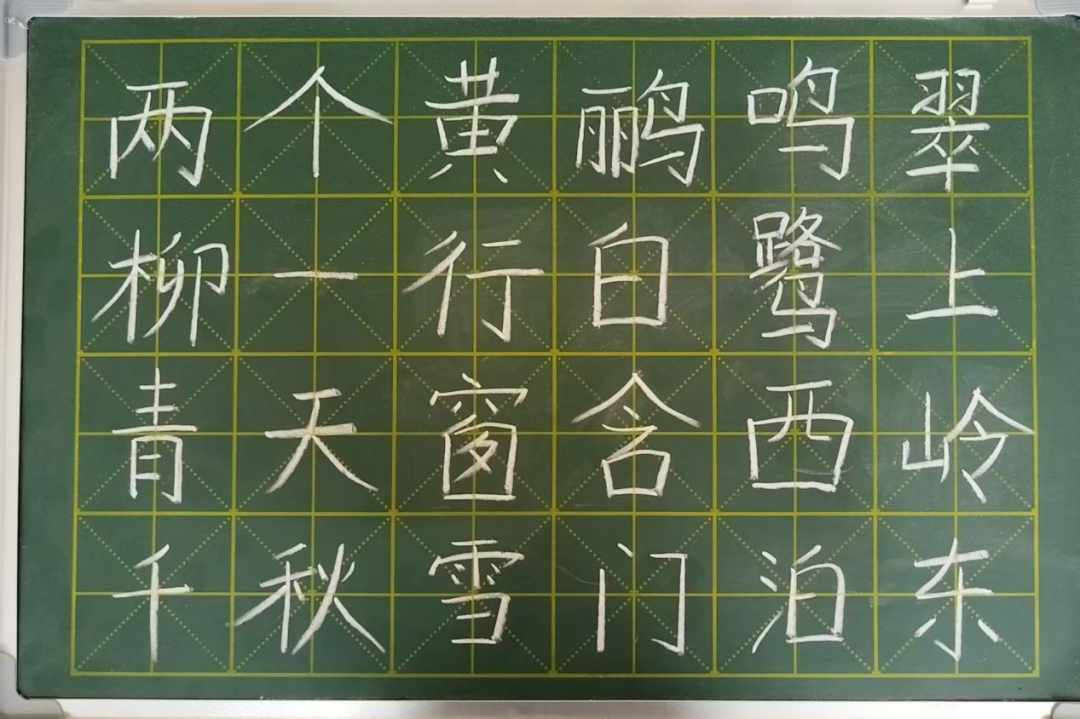 两个黄鹂鸣翠
柳一行白鹭上
青天窗含西岭
千秋雪门泊东